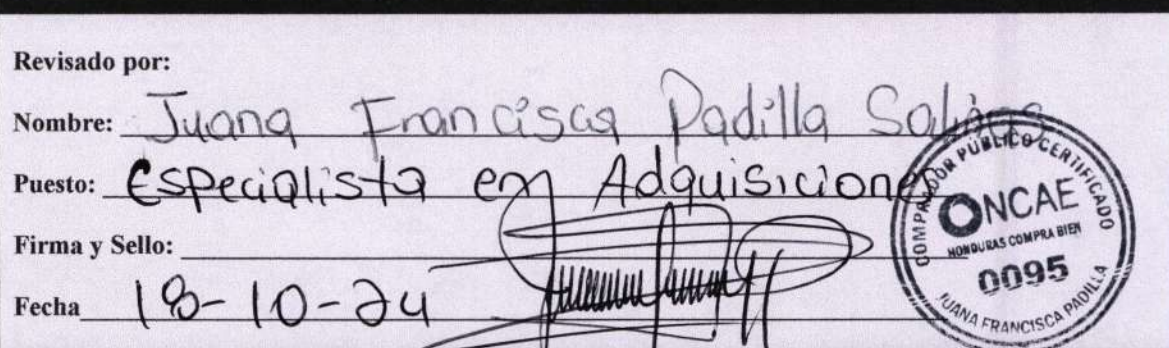 Revisado por:
Nombre: Juana Francisca Padilla Salinas
Puesto: Especialista en Adquisicione
Firma y Sello:
Fecha 18-10-24
COMPRADOR PÚBLICO CERTIFICADO
ONCAE
HONDURAS COMPRA BIEN
0095
JUANA FRANCISCA PADILLA